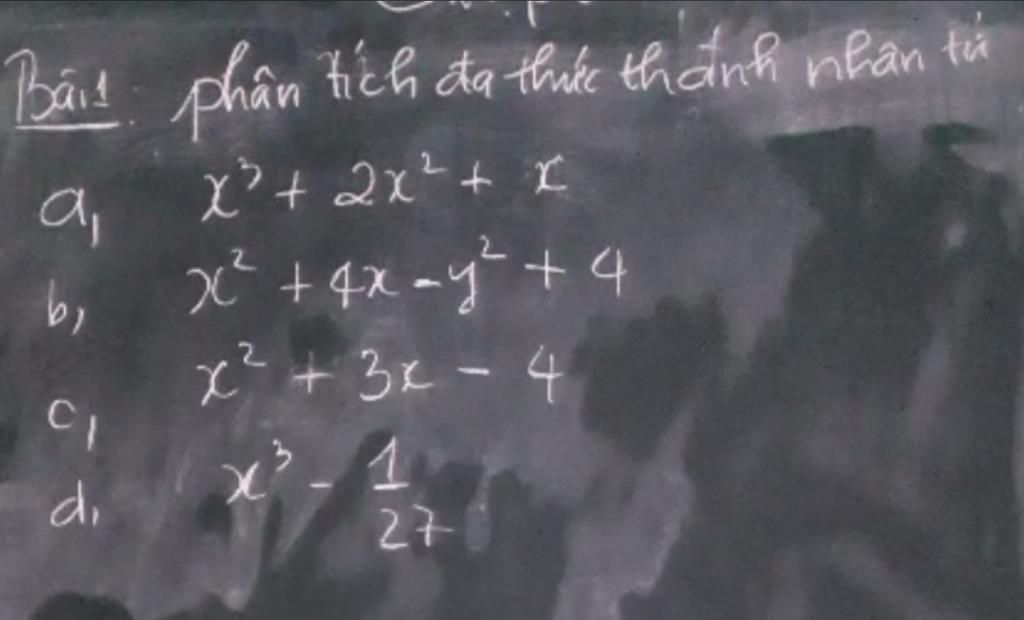 Bài 1: phân tích đa thức thành nhân tử
a, x³ + 2x² + x
b, x² + 4x - y² + 4
c, x² + 3x - 4
d, x³ - 1/27